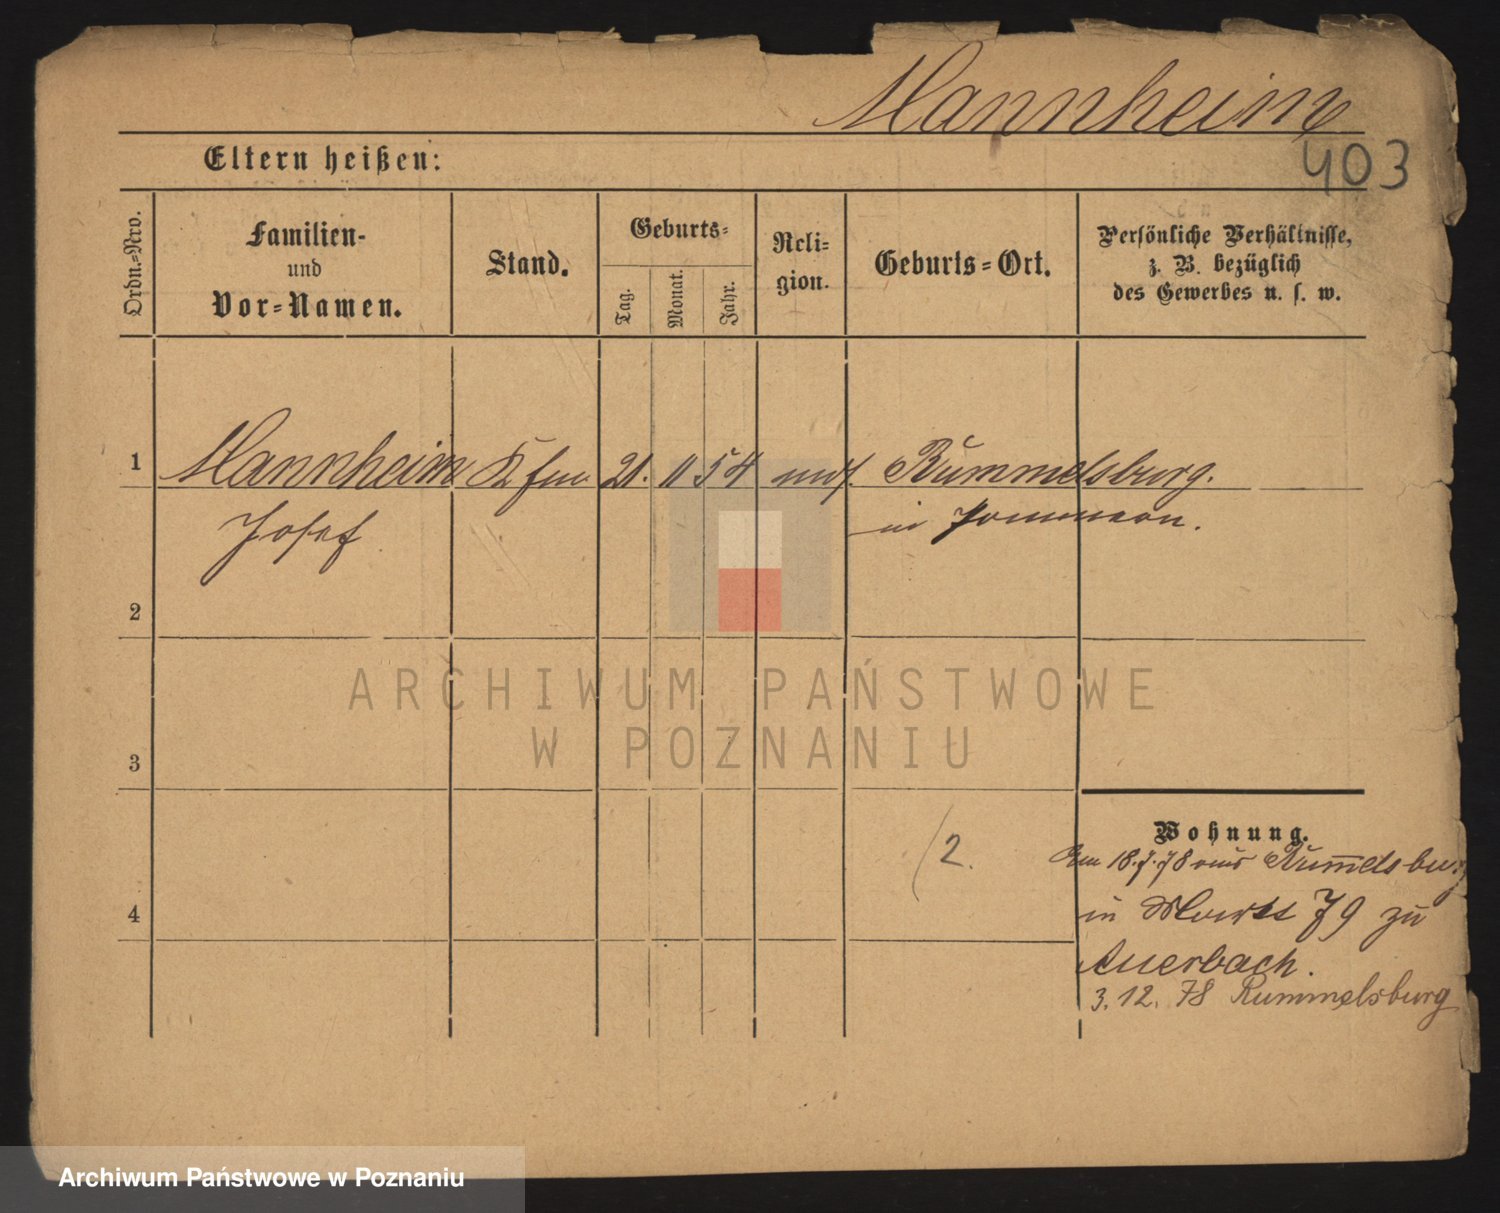 Mannheim
403
Eltern heißen:
Ordn.-Nro.
Familien-
und
Vor-Namen.
Stand.
Geburts-
Tag.
Monat.
Jahr.
Reli-
gion.
Geburts-Ort.
Persönliche Verhältnisse,
z. B. bezüglich
des Gewerbes u. s. w.
1 Mannheim Kfm 21. 11 54 mos. Rummelsburg.
Josef in Pommern.
2
ARCHIWUM PAŃSTWOWE
W POZNANIU
3
Wohnung.
2.
Am 18.7.78 aus Rummelsburg
4
in Markt 79 zu
Auerbach.
3.12.78 Rummelsburg
Archiwum Państwowe w Poznaniu